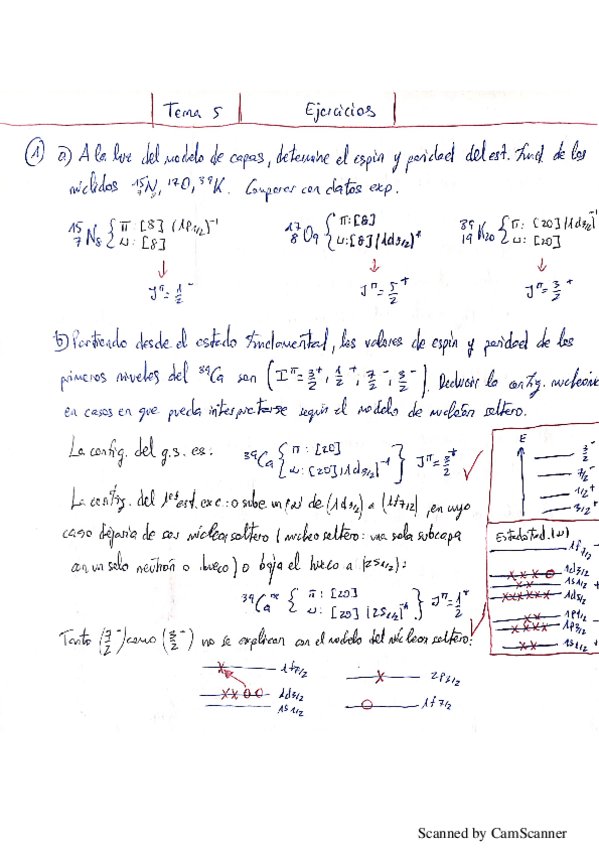 Tema 5 Ejercicios
① a) A la luz del modelo de capas, determine el espín y paridad del est. fund. de los
núclidos ¹⁵₇N, ¹⁷O, ³⁹K. Comparar con datos exp.
¹⁵₇N₈ { π: [8] (1p₁/₂)⁻¹ ¹⁷₈O₉ { π: [8] ³⁹₁₉K₂₀ { π: [20] (1d₃/₂)⁻¹
ν: [8] ν: [8] (1d₅/₂)¹ ν: [20]
↓ ↓ ↓
Jπ = 1/2⁻ Jπ = 5/2⁺ Jπ = 3/2⁺
b) Partiendo desde el estado fundamental, los valores de espín y paridad de los
primeros niveles del ³⁹Ca son (Iπ = 3/2⁺, 1/2⁺, 7/2⁻, 3/2⁻). Deducir la config. nucleónica
en casos en que pueda interpretarse según el modelo de nucleón soltero.
La config. del g.s. es: ³⁹Ca { π: [20]
ν: [20] (1d₃/₂)⁻¹ } Jπ = 3/2⁺ ✓
La config. del 1er est. exc.: o sube un (ν) de (1d₃/₂) a (1f₇/₂), en cuyo
caso dejaría de ser núcleo soltero (núcleo soltero: una sola subcapa
con un solo neutrón o hueco) o baja el hueco a (2s₁/₂):
³⁹Ca* { π: [20]
ν: [20] (2s₁/₂)⁻¹ } Jπ = 1/2⁺ ✓
Tanto (7/2⁻) como (3/2⁻) no se explican con el modelo del núcleon soltero:
1f₇/₂
1d₃/₂
1s₁/₂
2p₃/₂
1f₇/₂
E
3/2⁻
7/2⁻
1/2⁺
3/2⁺
Estado fud. (ν)
1f₇/₂ -
1d₃/₂ +
1s₁/₂ +
1d₅/₂
1p₁/₂ -
1p₃/₂
1s₁/₂ +
Scanned by CamScanner